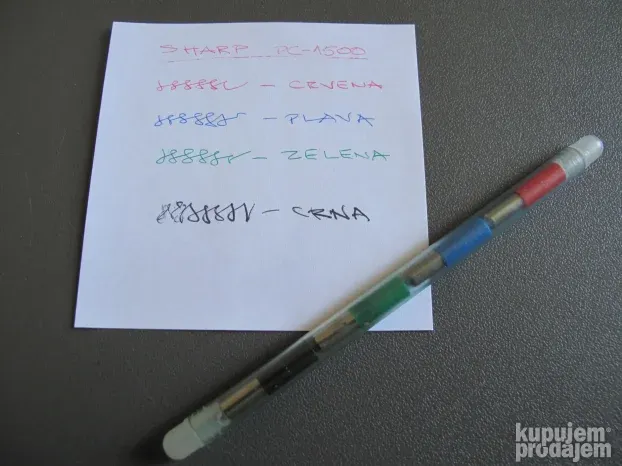 SHARP PC-1500
– CRVENA
– PLAVA
– ZELENA
– CRNA
kupujem
prodajem